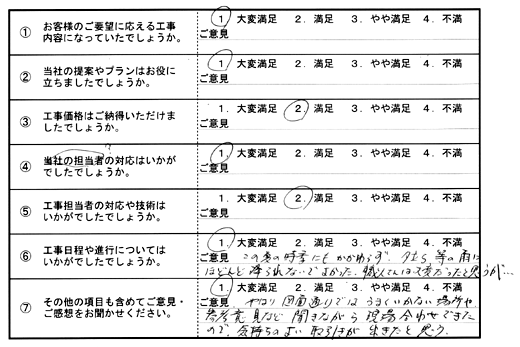 ① お客様のご要望に応える工事
内容になっていたでしょうか。
1. 大変満足 2. 満足 3. やや満足 4. 不満
ご意見
② 当社の提案やプランはお役に
立ちましたでしょうか。
1. 大変満足 2. 満足 3. やや満足 4. 不満
ご意見
③ 工事価格はご納得いただけま
したでしょうか。
1. 大変満足 2. 満足 3. やや満足 4. 不満
ご意見
?
④ 当社の担当者の対応はいかが
でしたでしょうか。
1. 大変満足 2. 満足 3. やや満足 4. 不満
ご意見
⑤ 工事担当者の対応や技術は
いかがでしたでしょうか。
1. 大変満足 2. 満足 3. やや満足 4. 不満
ご意見
⑥ 工事日程や進行については
いかがでしたでしょうか。
1. 大変満足 2. 満足 3. やや満足 4. 不満
ご意見 この冬の時季にもかかわらず、 等の雨に
ほとんど降られないでよかった。職人さんは大変だったと思うが…
⑦ その他の項目も含めてご意見・
ご感想をお聞かせください。
1. 大変満足 2. 満足 3. やや満足 4. 不満
ご意見 やはり図面通りではうまくいかない場所や、
参考意見など聞きながら現場合わせできた
ので、気持ちのよい取引きが出きたと思う。